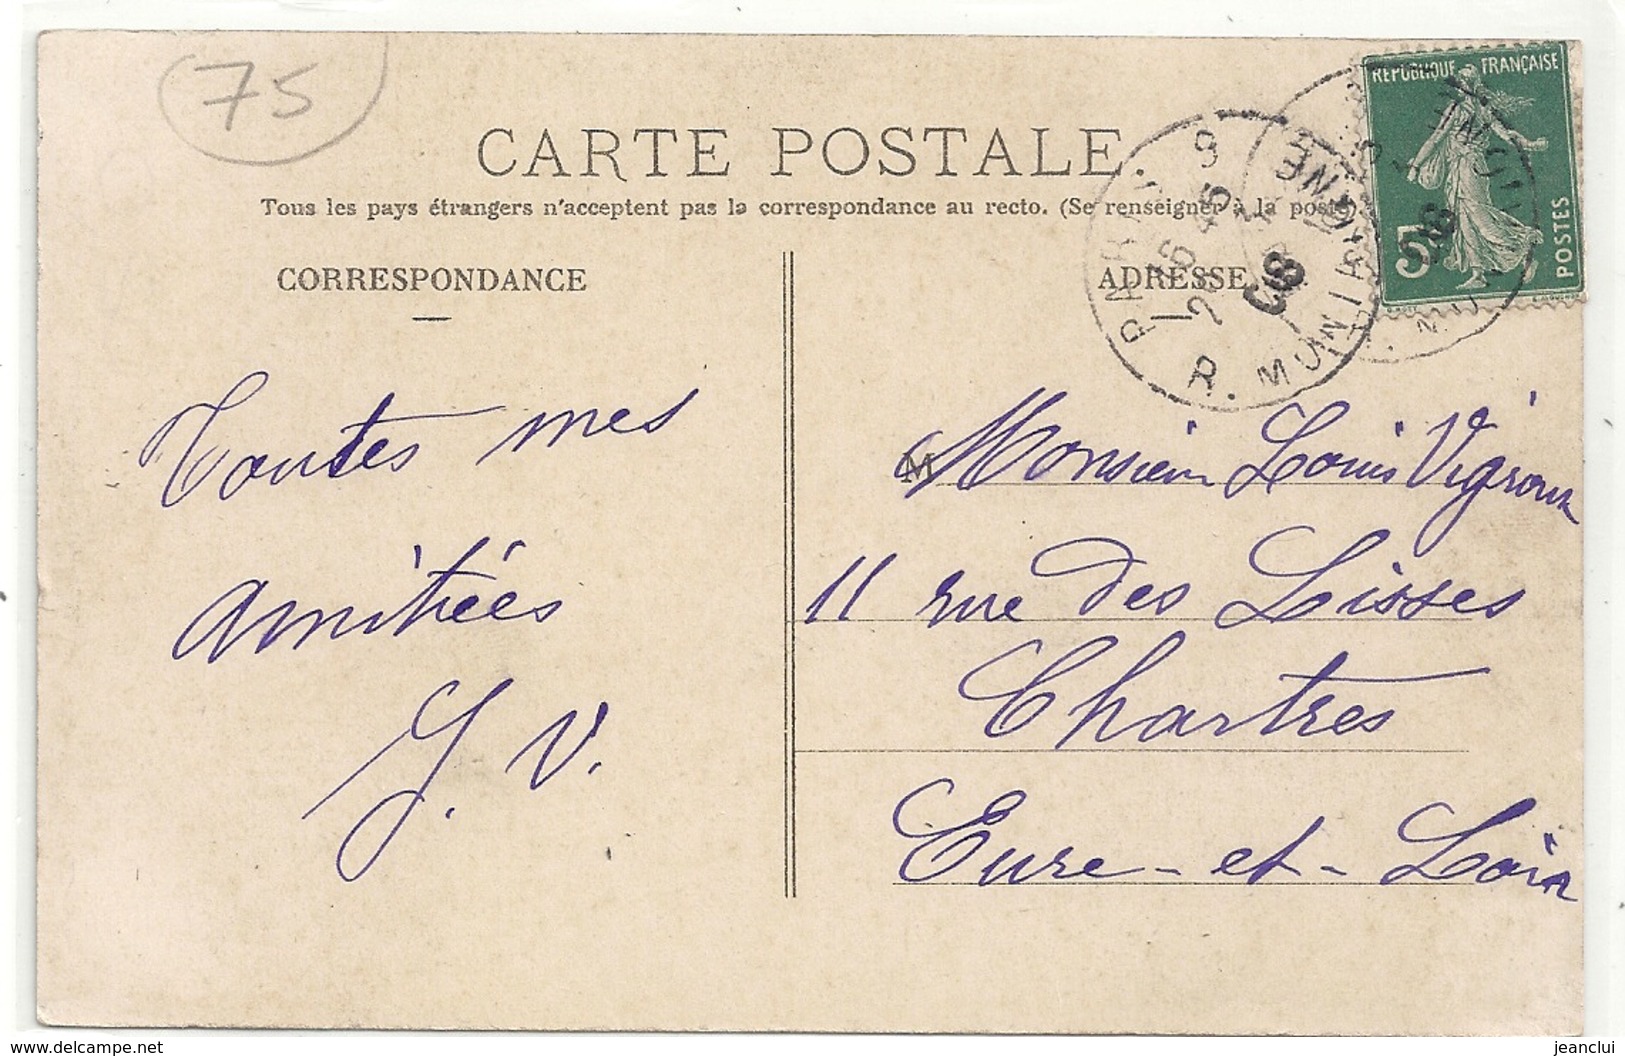 75
CARTE POSTALE
Tous les pays étrangers n'acceptent pas la correspondance au recto. (Se renseigner à la poste).
CORRESPONDANCE
ADRESSE
REPUBLIQUE FRANÇAISE
5
POSTES
PARIS
16 45
08
R. MUN
Toutes mes
amitiées
J. V.
M
Monsieur Louis Vigroux
11 rue des Lisses
Chartres
Eure-et-Loir
www.delcampe.net
jeanclui